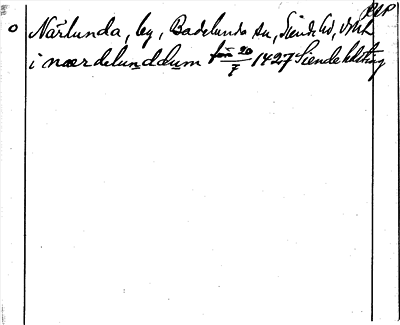 Närlunda, by, Badelunda sn, Siende hd, Vstm.
i nærdelunddum 20/7 1427 Siendehdting